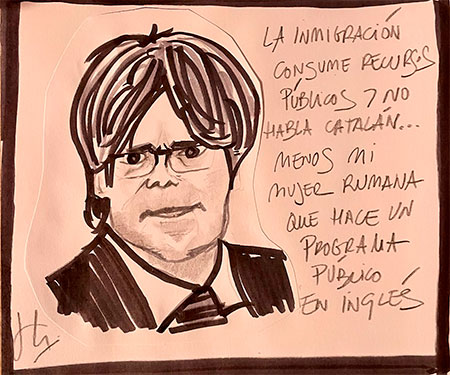 LA INMIGRACIÓN
CONSUME RECURSOS
PÚBLICOS Y NO
HABLA CATALÁN...
MENOS MI
MUJER RUMANA
QUE HACE UN
PROGRAMA
PÚBLICO
EN INGLÉS